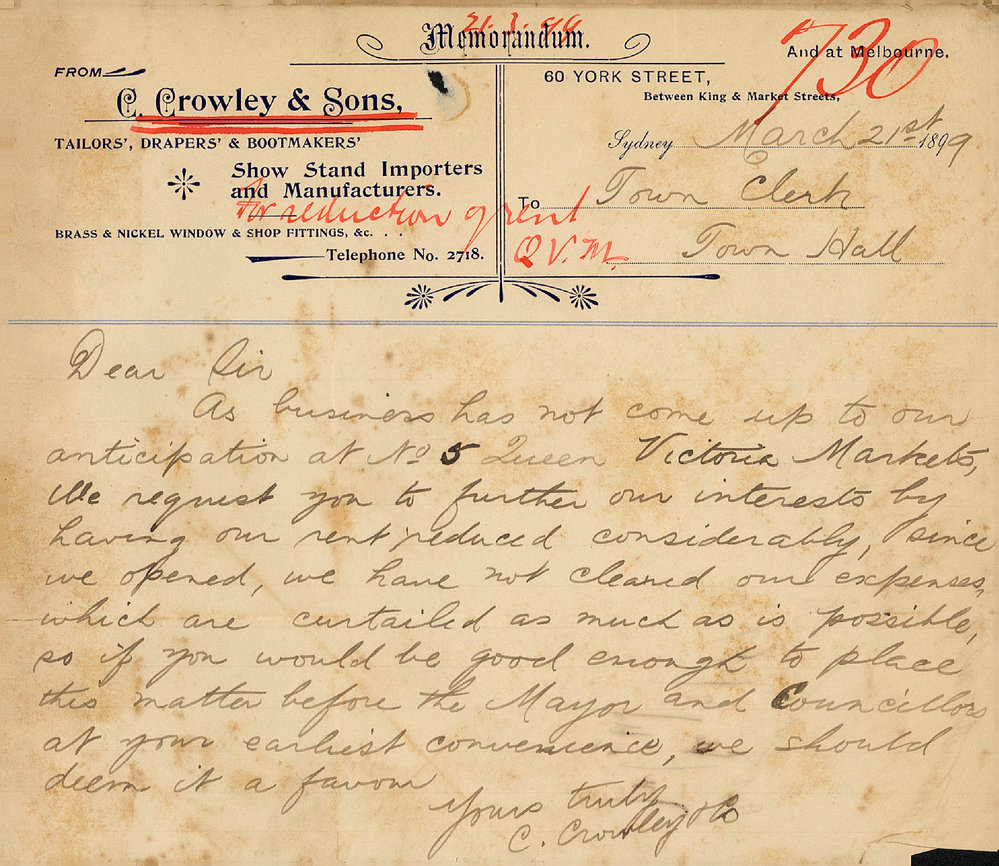 21.3.99
Memorandum.
730
And at Melbourne.
FROM
C. Crowley & Sons,
TAILORS', DRAPERS' & BOOTMAKERS'
Show Stand Importers
and Manufacturers.
For reduction of rent
Q.V.M.
BRASS & NICKEL WINDOW & SHOP FITTINGS, &c. . . .
Telephone No. 2718.
60 YORK STREET,
Between King & Market Streets,
Sydney March 21st 1899
To Town Clerk
Town Hall
Dear Sir
As business has not come up to our
anticipation at No 5 Queen Victoria Markets,
We request you to further our interests by
having our rent reduced considerably, since
we opened, we have not cleared our expenses,
which are curtailed as much as is possible,
so if you would be good enough to place
this matter before the Mayor and Councillors
at your earliest convenience, we should
deem it a favour
Yours truly
C. Crowley & Co